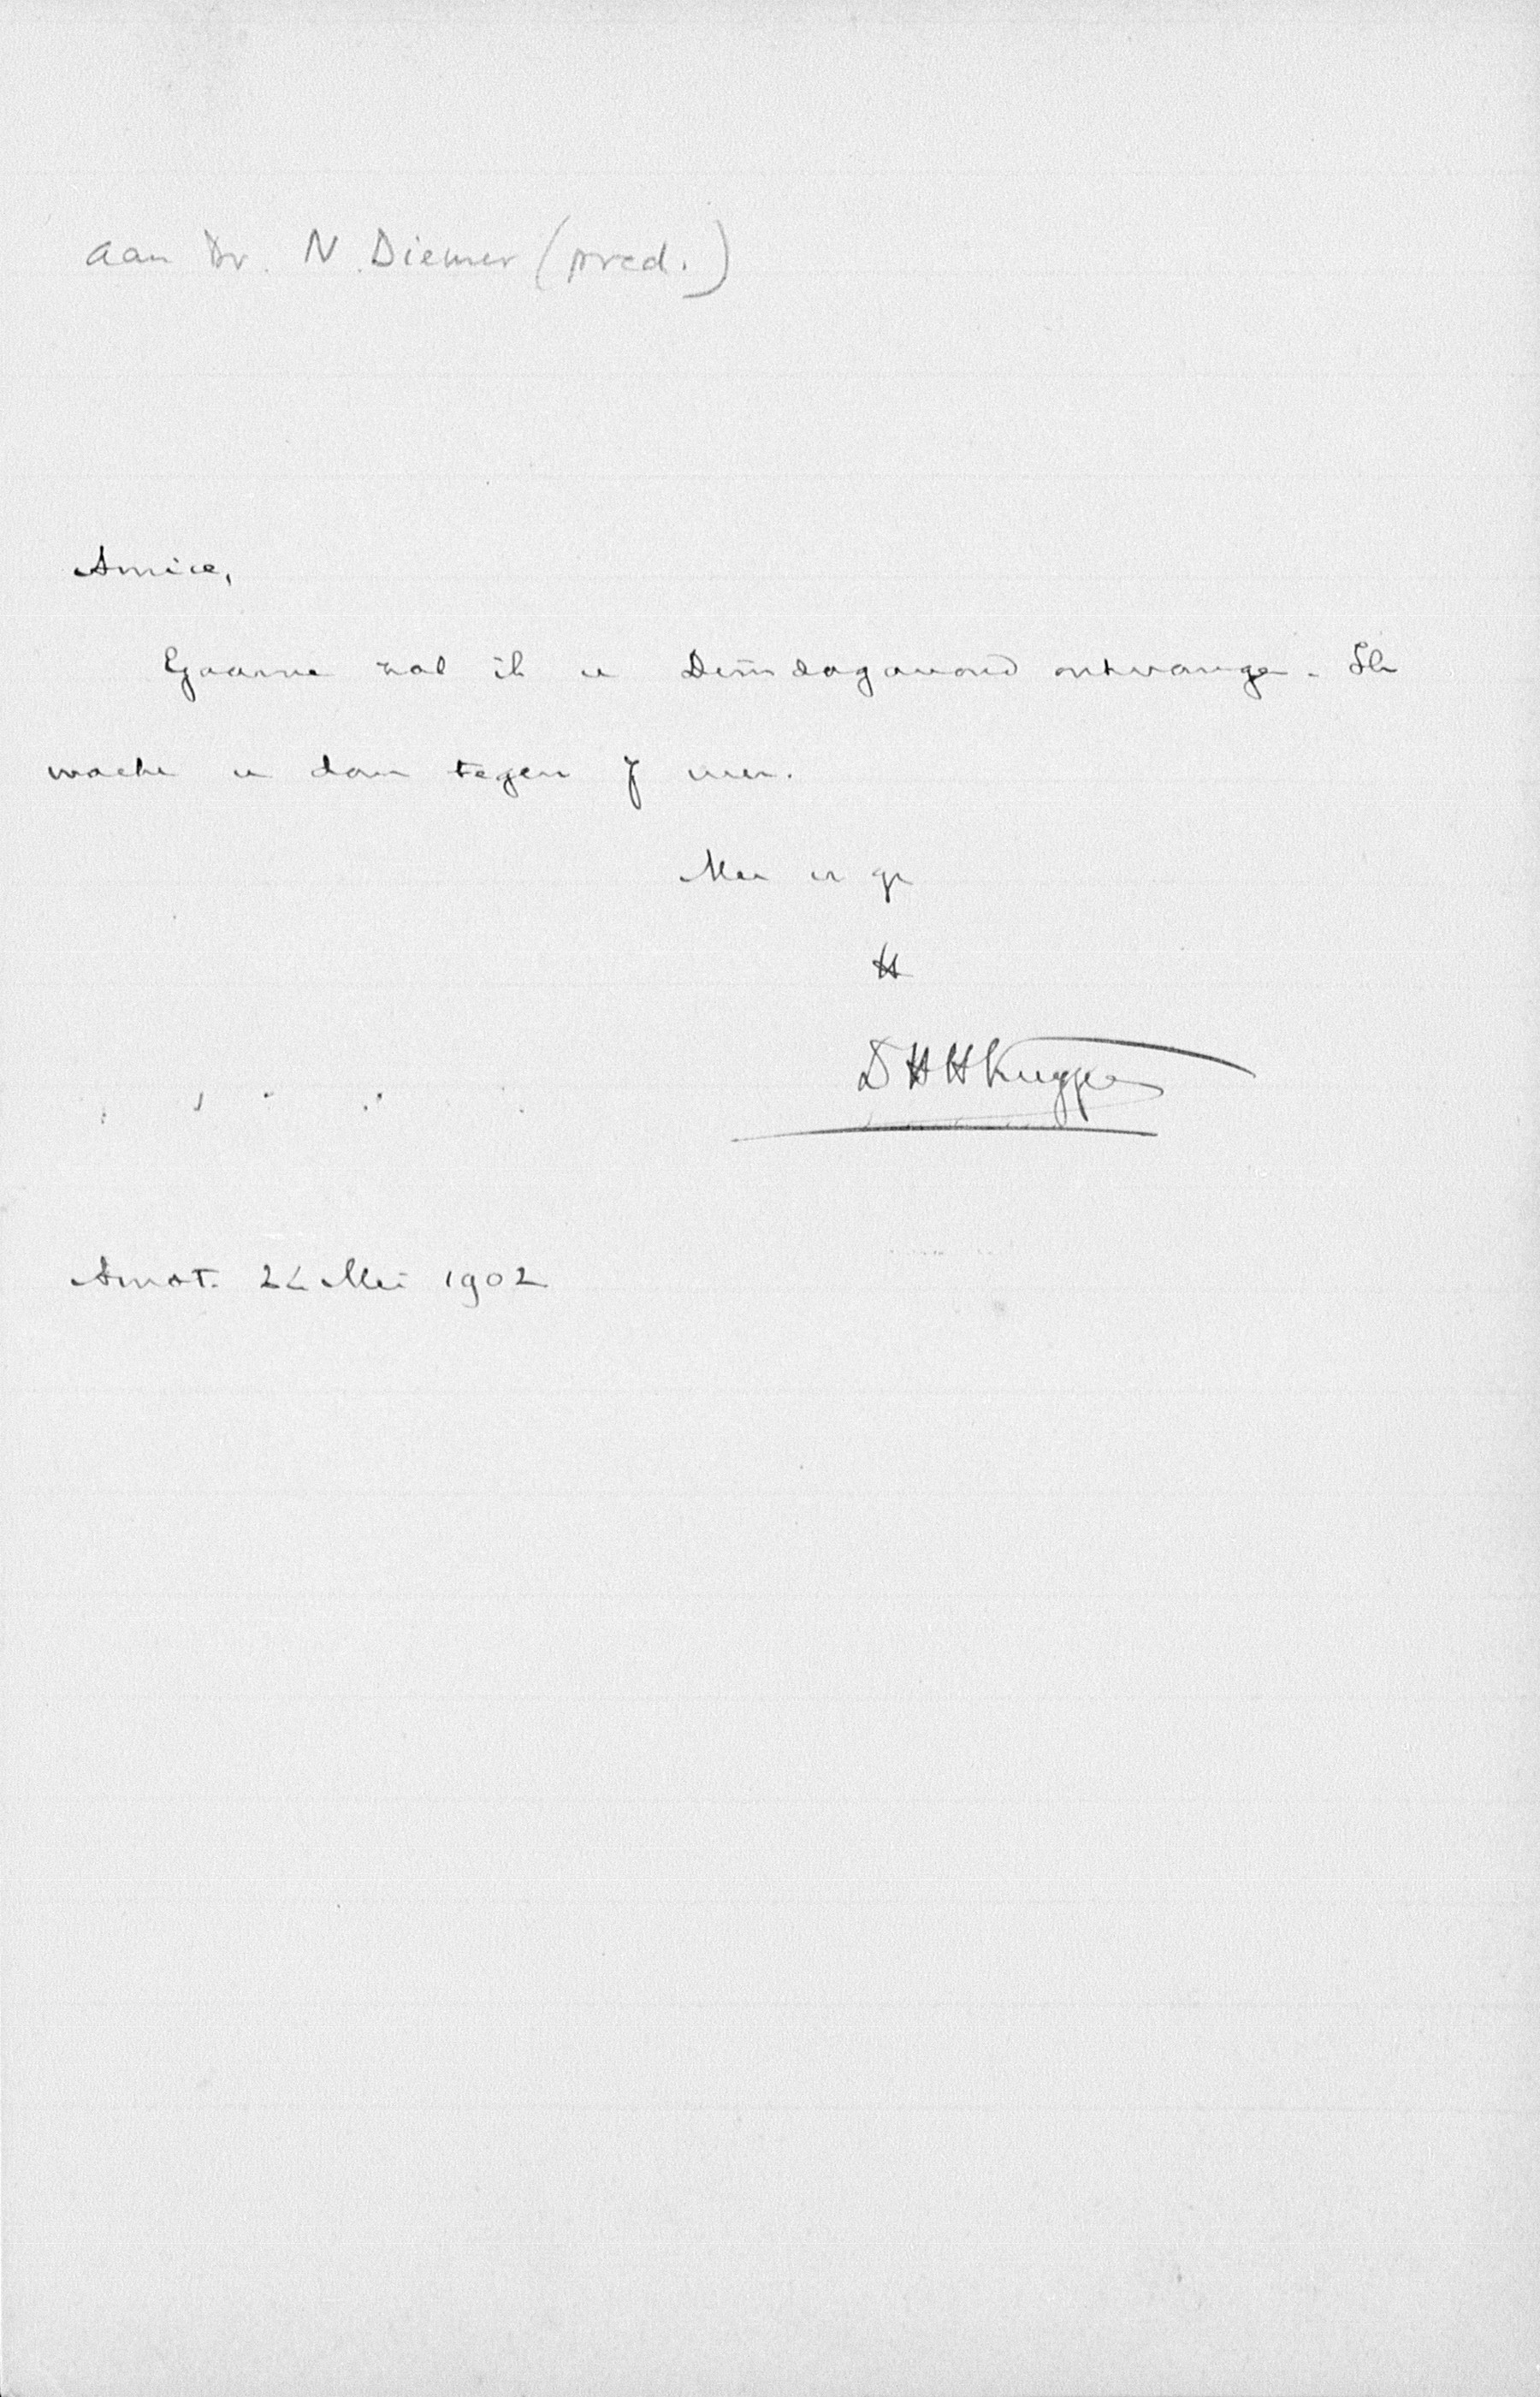 aan Dr. N. Diemer (pred.)
Amice,
Gaarne zal ik u Dinsdagavond ontvangen. Ik
wacht u dan tegen 7 uur.
Met gr
tt
Dr H H Kuyper
Amst. 22 Mei 1902